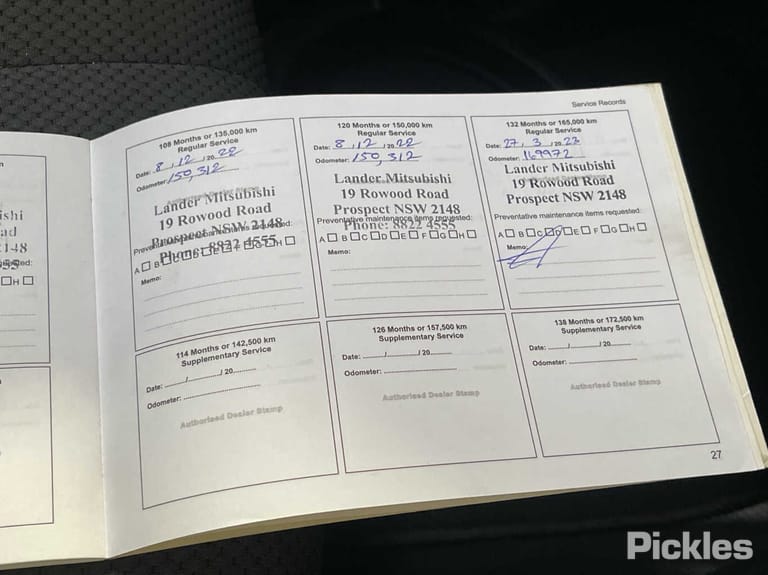 Service Records
108 Months or 135,000 km
Regular Service
Date: 8, 12 / 20 22
Odometer: 150,312
Authorised Dealer Stamp
Lander Mitsubishi
19 Rowood Road
Prospect NSW 2148
Phone: 8822 4555
Preventative maintenance items requested:
A B C D E F G H
Memo:
120 Months or 150,000 km
Regular Service
Date: 8, 12 / 20 22
Odometer: 150,312
Lander Mitsubishi
19 Rowood Road
Prospect NSW 2148
Preventative maintenance items requested:
Phone: 8822 4555
A B C D E F G H
Memo:
132 Months or 165,000 km
Regular Service
Date: 27, 3 / 20 23
Odometer: 169972
Lander Mitsubishi
19 Rowood Road
Prospect NSW 2148
Preventative maintenance items requested:
A B C D E F G H
Memo:
114 Months or 142,500 km
Supplementary Service
Date: ......../......../ 20.........
Odometer: ..............................
Authorised Dealer Stamp
126 Months or 157,500 km
Supplementary Service
Date: ......../......../ 20.........
Odometer: ..............................
Authorised Dealer Stamp
138 Months or 172,500 km
Supplementary Service
Date: ......../......../ 20.........
Odometer: ..............................
Authorised Dealer Stamp
27
Pickles